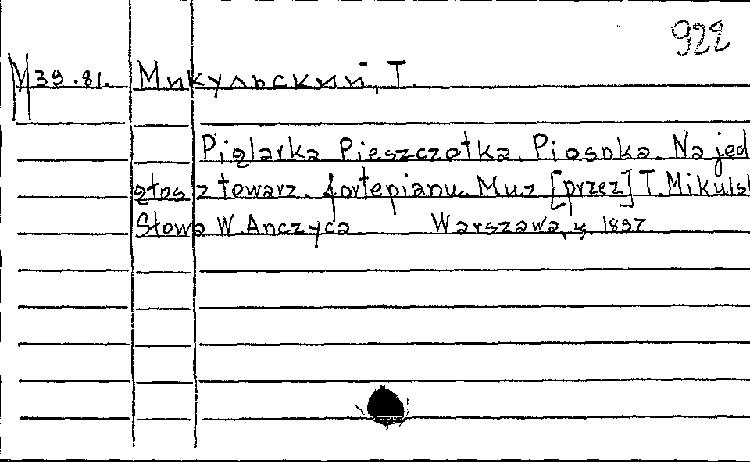 922
M 39.81. Микульский, T.
Pięlarka Pieszczotka. Piosnka. Na jed
głos z towarz. fortepianu. Muz [przez] T. Mikuls
Słowa W. Anczyca Warszawa, 1897